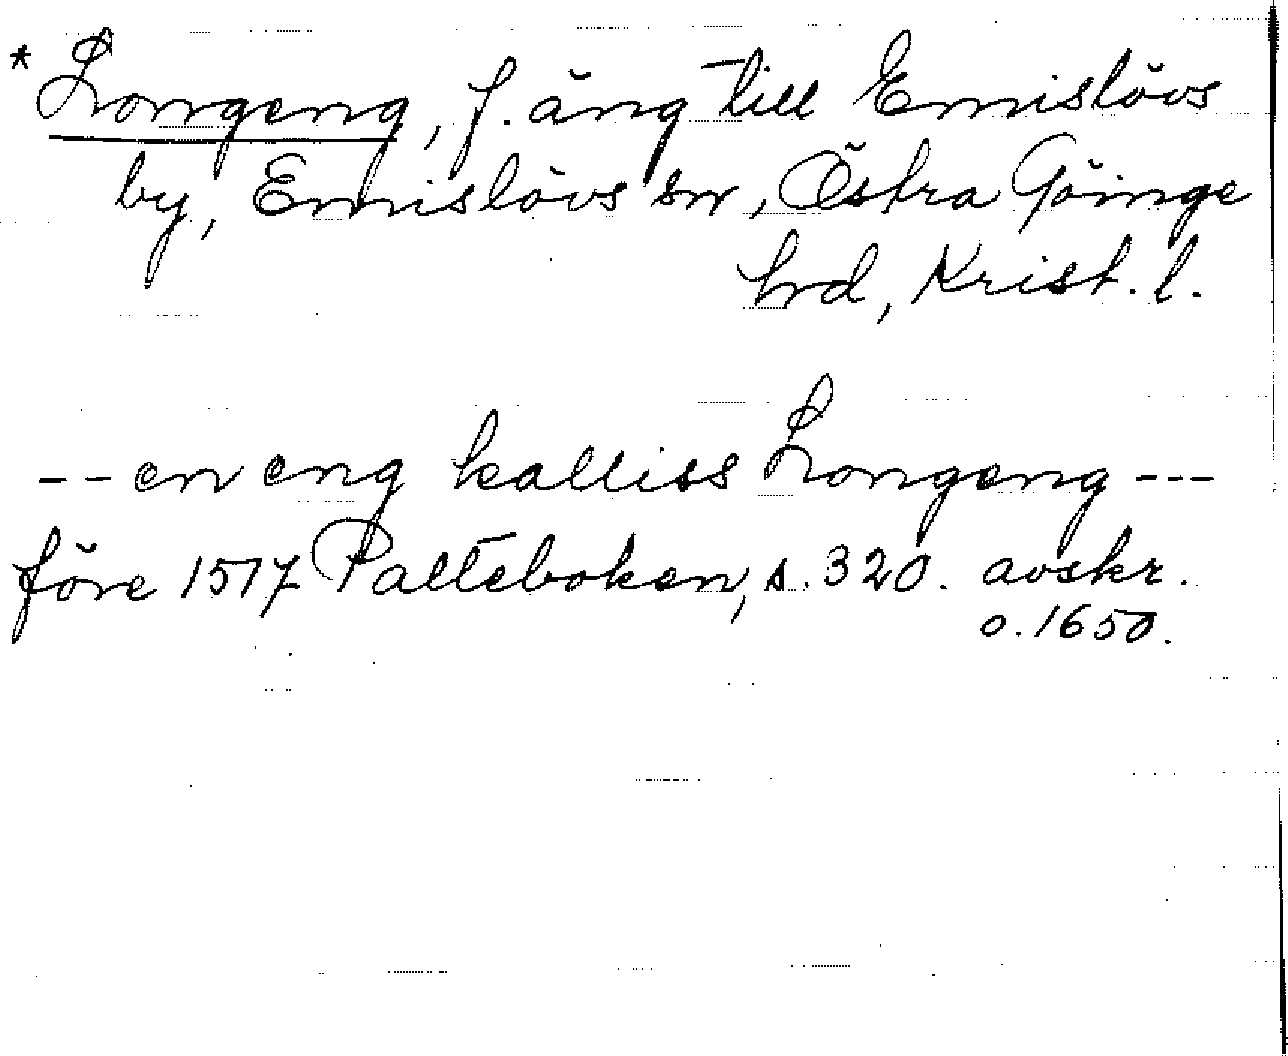 * Longeng, f. äng till Emislövs
by, Emislövs sn, Östra Göinge
hrd, Krist. l.
-- en eng kalliss Longeng ---
före 1517 Palteboken, s. 320. avskr.
o. 1650.